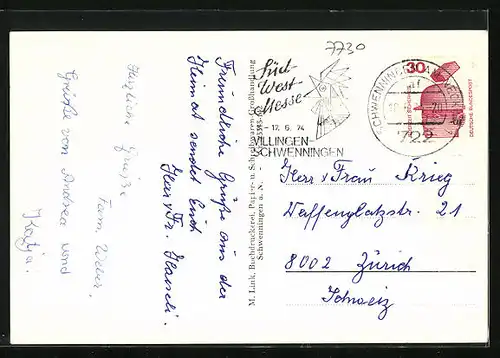 7730
Süd-
West-
Messe
- 17. 6. 74
VILLINGEN-
SCHWENNINGEN
SCHWENNINGEN AM NECKAR
722
30
DEUTSCHE BUNDESPOST
Freundliche Grüße aus der
Heimat sendet Euch
Herr & Fr.
Herzliche Grüße
Fam. Weber.
Grüße von Andrea und
Katja.
M. Link, Buchdruckerei, Papier- u. Schreibwaren-Großhandlung
Schwenningen a. N.
Herr & Frau Krieg
Waffenplatzstr. 21
8002 Zürich
Schweiz